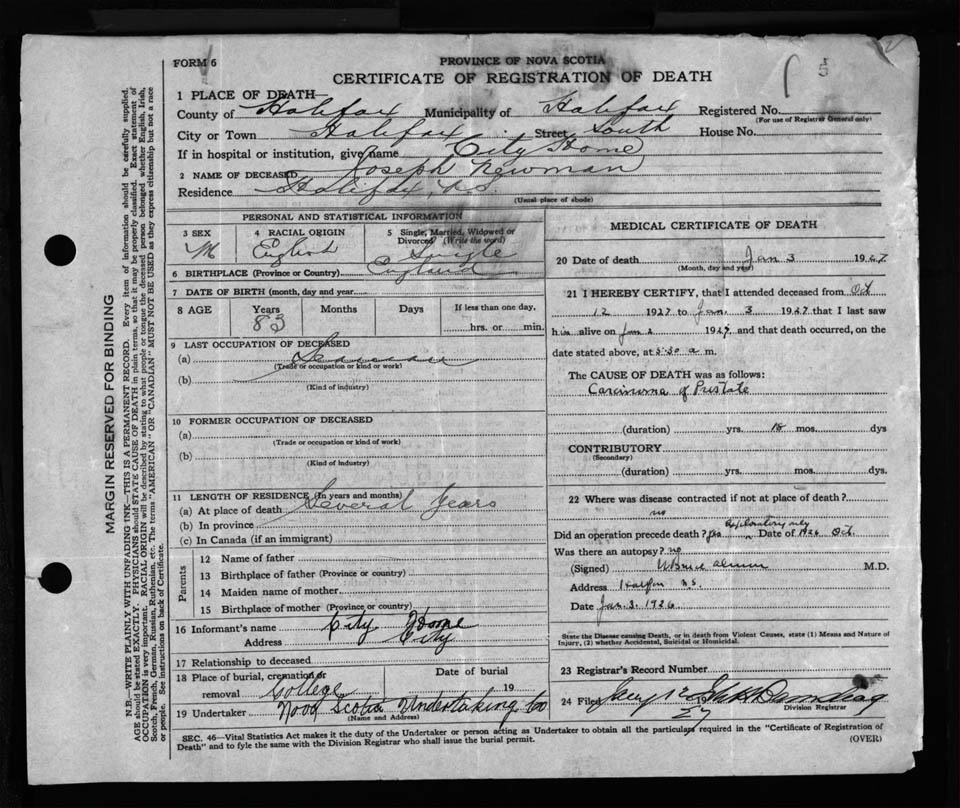 FORM 6
PROVINCE OF NOVA SCOTIA
CERTIFICATE OF REGISTRATION OF DEATH
5
1 PLACE OF DEATH
County of Halifax Municipality of Halifax Registered No.
(For use of Registrar General only)
City or Town Halifax Street South House No.
If in hospital or institution, give name City Home
2 NAME OF DECEASED Joseph Newman
Residence Halifax, N.S.
(Usual place of abode)
PERSONAL AND STATISTICAL INFORMATION
3 SEX
M
4 RACIAL ORIGIN
English
5 Single, Married, Widowed or Divorced (Write the word)
Single
6 BIRTHPLACE (Province or Country) England
7 DATE OF BIRTH (month, day and year)
8 AGE Years Months Days If less than one day,
83 hrs. or min.
9 LAST OCCUPATION OF DECEASED
(a) Seaman
(Trade or occupation or kind or work)
(b)
(Kind of industry)
10 FORMER OCCUPATION OF DECEASED
(a)
(Trade or occupation or kind of work)
(b)
(Kind of industry)
11 LENGTH OF RESIDENCE (In years and months)
(a) At place of death Several Years
(b) In province
(c) In Canada (if an immigrant)
Parents
12 Name of father
13 Birthplace of father (Province or country)
14 Maiden name of mother
15 Birthplace of mother (Province or country)
16 Informant's name City Home
Address City
17 Relationship to deceased
18 Place of burial, cremation or removal College
Date of burial
19
19 Undertaker Nova Scotia Undertaking Co
(Name and Address)
MEDICAL CERTIFICATE OF DEATH
20 Date of death Jan 3 1927
(Month, day and year)
21 I HEREBY CERTIFY, that I attended deceased from Oct
12 1927 to Jan. 3 1927 that I last saw
him alive on Jan 2 1927, and that death occurred, on the
date stated above, at 5:30 a m.
The CAUSE OF DEATH was as follows:
Carcinoma of Prostate
(duration) yrs. 18 mos. dys
CONTRIBUTORY
(Secondary)
(duration) yrs. mos. dys.
22 Where was disease contracted if not at place of death?
no
Did an operation precede death? yes Exploratory only Date of 1926 Oct.
Was there an autopsy? no
(Signed) M.D.
Address Halifax N.S.
Date Jan. 3. 1926
State the Disease causing Death, or in death from Violent Causes, state (1) Means and Nature of
Injury, (2) whether Accidental, Suicidal or Homicidal.
23 Registrar's Record Number
24 Filed
27
Division Registrar
SEC. 46—Vital Statistics Act makes it the duty of the Undertaker or person acting as Undertaker to obtain all the particulars required in the "Certificate of Registration of
Death" and to fyle the same with the Division Registrar who shall issue the burial permit.
(OVER)
MARGIN RESERVED FOR BINDING
N.B.—WRITE PLAINLY WITH UNFADING INK—THIS IS A PERMANENT RECORD. Every item of information should be carefully supplied.
AGE should be stated EXACTLY. PHYSICIANS should STATE CAUSE OF DEATH in plain terms, so that it may be properly classified. Exact statement of
OCCUPATION is very important. RACIAL ORIGIN will be described by stating to what people or tongue the deceased person belonged whether English, Irish,
Scotch, French, German, Russian, Ruthenian, etc. The terms "AMERICAN" OR "CANADIAN" MUST NOT BE USED as they express citizenship but not a race
or people. See instructions on back of Certificate.